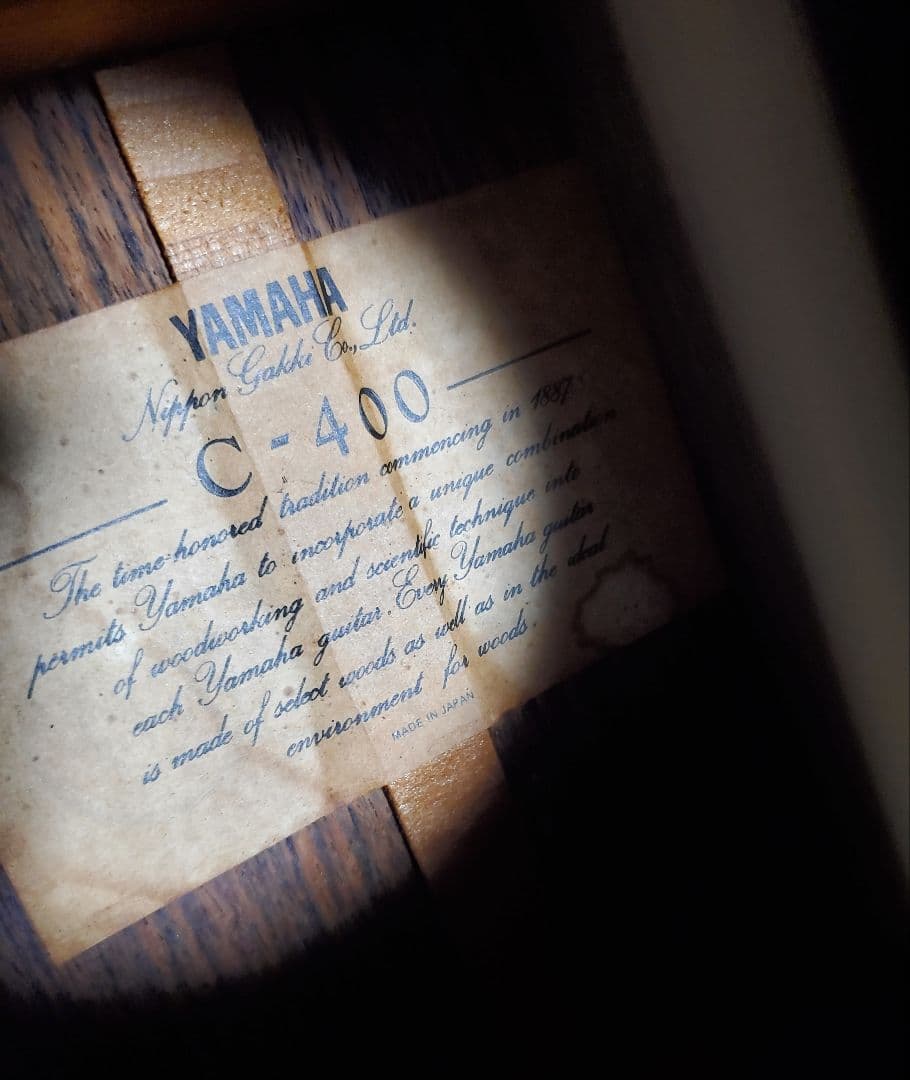 YAMAHA
Nippon Gakki Co., Ltd.
C-400
The time-honored tradition commencing in 1887
permits Yamaha to incorporate a unique combination
of woodworking and scientific technique into
each Yamaha guitar. Every Yamaha guitar
is made of select woods as well as in the ideal
environment for woods.
MADE IN JAPAN